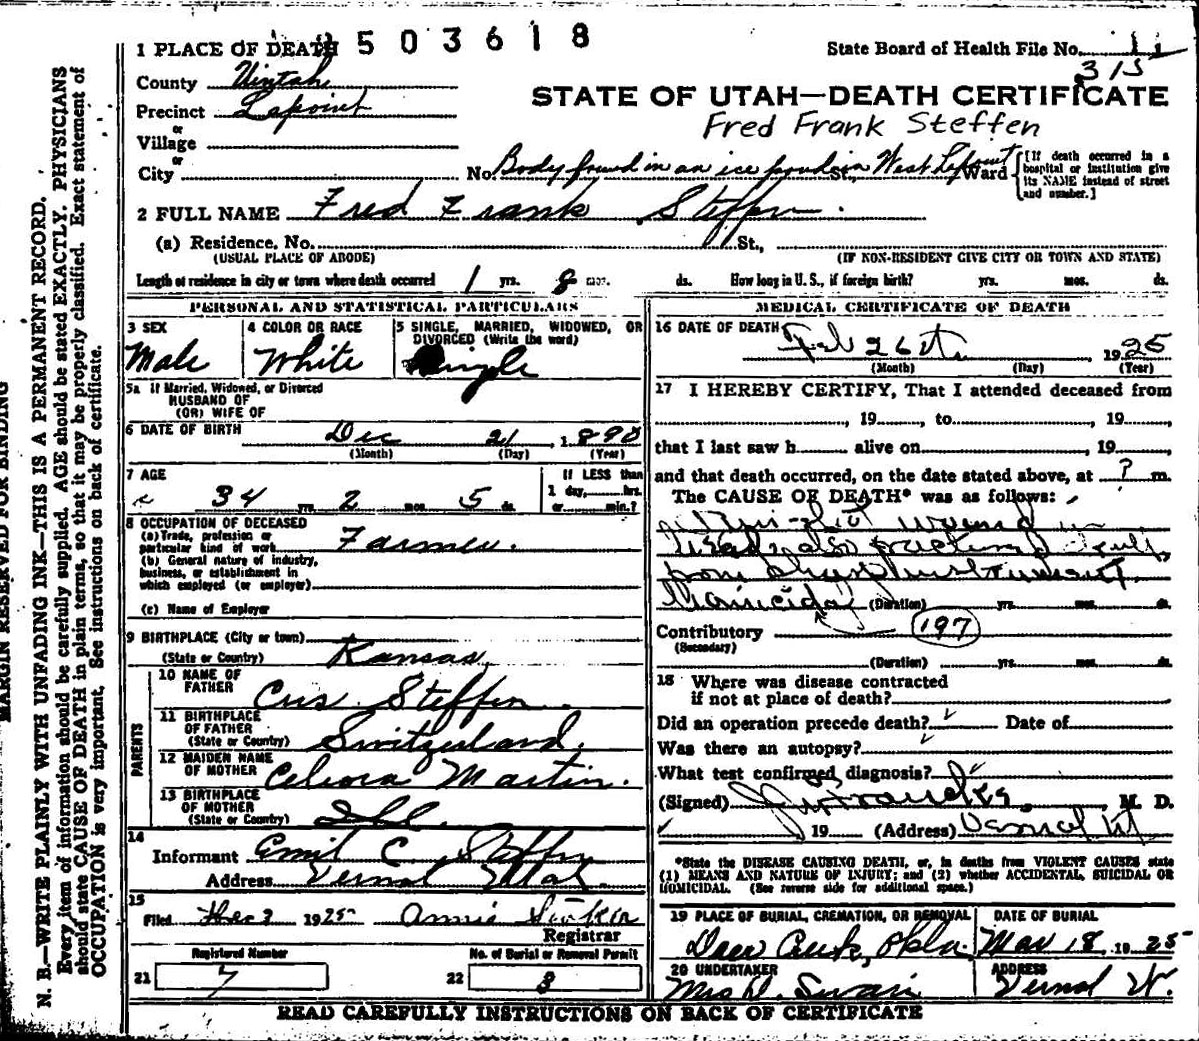 503618
1 PLACE OF DEATH
State Board of Health File No. 11
315
County Uintah
Precinct Lapoint
or
Village
or
City
STATE OF UTAH—DEATH CERTIFICATE
Fred Frank Steffen
No. Body found in an ice pond in St., West Lapoint Ward
[If death occurred in a hospital or institution give its NAME instead of street and number.]
2 FULL NAME Fred Frank Steffen.
(a) Residence, No. St.,
(USUAL PLACE OF ABODE) (IF NON-RESIDENT GIVE CITY OR TOWN AND STATE)
Length of residence in city or town where death occurred 1 yrs. 8 mos. ds. How long in U. S., if foreign birth? yrs. mos. ds.
PERSONAL AND STATISTICAL PARTICULARS
3 SEX
Male
4 COLOR OR RACE
White
5 SINGLE, MARRIED, WIDOWED, OR DIVORCED (Write the word)
Single
5a If Married, Widowed, or Divorced
HUSBAND OF
(OR) WIFE OF
6 DATE OF BIRTH Dec 21, 1890
(Month) (Day) (Year)
7 AGE
34 yrs. 2 mos. 5 ds.
If LESS than
1 day, hrs.
or min.?
8 OCCUPATION OF DECEASED
(a) Trade, profession or
particular kind of work Farmer.
(b) General nature of industry,
business, or establishment in
which employed (or employer)
(c) Name of Employer
9 BIRTHPLACE (City or town)
(State or Country) Kansas
PARENTS
10 NAME OF
FATHER Steffen.
11 BIRTHPLACE
OF FATHER
(State or Country) Switzerland.
12 MAIDEN NAME
OF MOTHER Martin.
13 BIRTHPLACE
OF MOTHER
(State or Country) Ill.
14
Informant Emil C. Steffen
Address Vernal Utah
15
Filed 3 1925 Annie
Registrar
Registered Number
21 7
No. of Burial or Removal Permit
22 3
MEDICAL CERTIFICATE OF DEATH
16 DATE OF DEATH
Feb 26th, 1925
(Month) (Day) (Year)
17 I HEREBY CERTIFY, That I attended deceased from
, 19 , to , 19 ,
that I last saw h alive on , 19 ,
and that death occurred, on the date stated above, at ? m.
The CAUSE OF DEATH* was as follows:
wound in
head also fractured skull
from instrument.
Homicidal (Duration) yrs. mos. ds.
Contributory 197
(Secondary)
(Duration) yrs. mos. ds.
18 Where was disease contracted
if not at place of death?
Did an operation precede death? Date of
Was there an autopsy?
What test confirmed diagnosis?
(Signed) , M. D.
19 (Address) Vernal Ut
*State the DISEASE CAUSING DEATH, or, in deaths from VIOLENT CAUSES state
(1) MEANS AND NATURE OF INJURY; and (2) whether ACCIDENTAL, SUICIDAL OR
HOMICIDAL. (See reverse side for additional space.)
19 PLACE OF BURIAL, CREMATION, OR REMOVAL
Deer Creek, Okla.
DATE OF BURIAL
Mar 18 1925
20 UNDERTAKER
Mrs D. Swain
ADDRESS
Vernal Ut.
READ CAREFULLY INSTRUCTIONS ON BACK OF CERTIFICATE
MARGIN RESERVED FOR BINDING
N. B.—WRITE PLAINLY WITH UNFADING INK—THIS IS A PERMANENT RECORD.
Every item of information should be carefully supplied. AGE should be stated EXACTLY. PHYSICIANS
should state CAUSE OF DEATH in plain terms, so that it may be properly classified. Exact statement of
OCCUPATION is very important. See instructions on back of certificate.